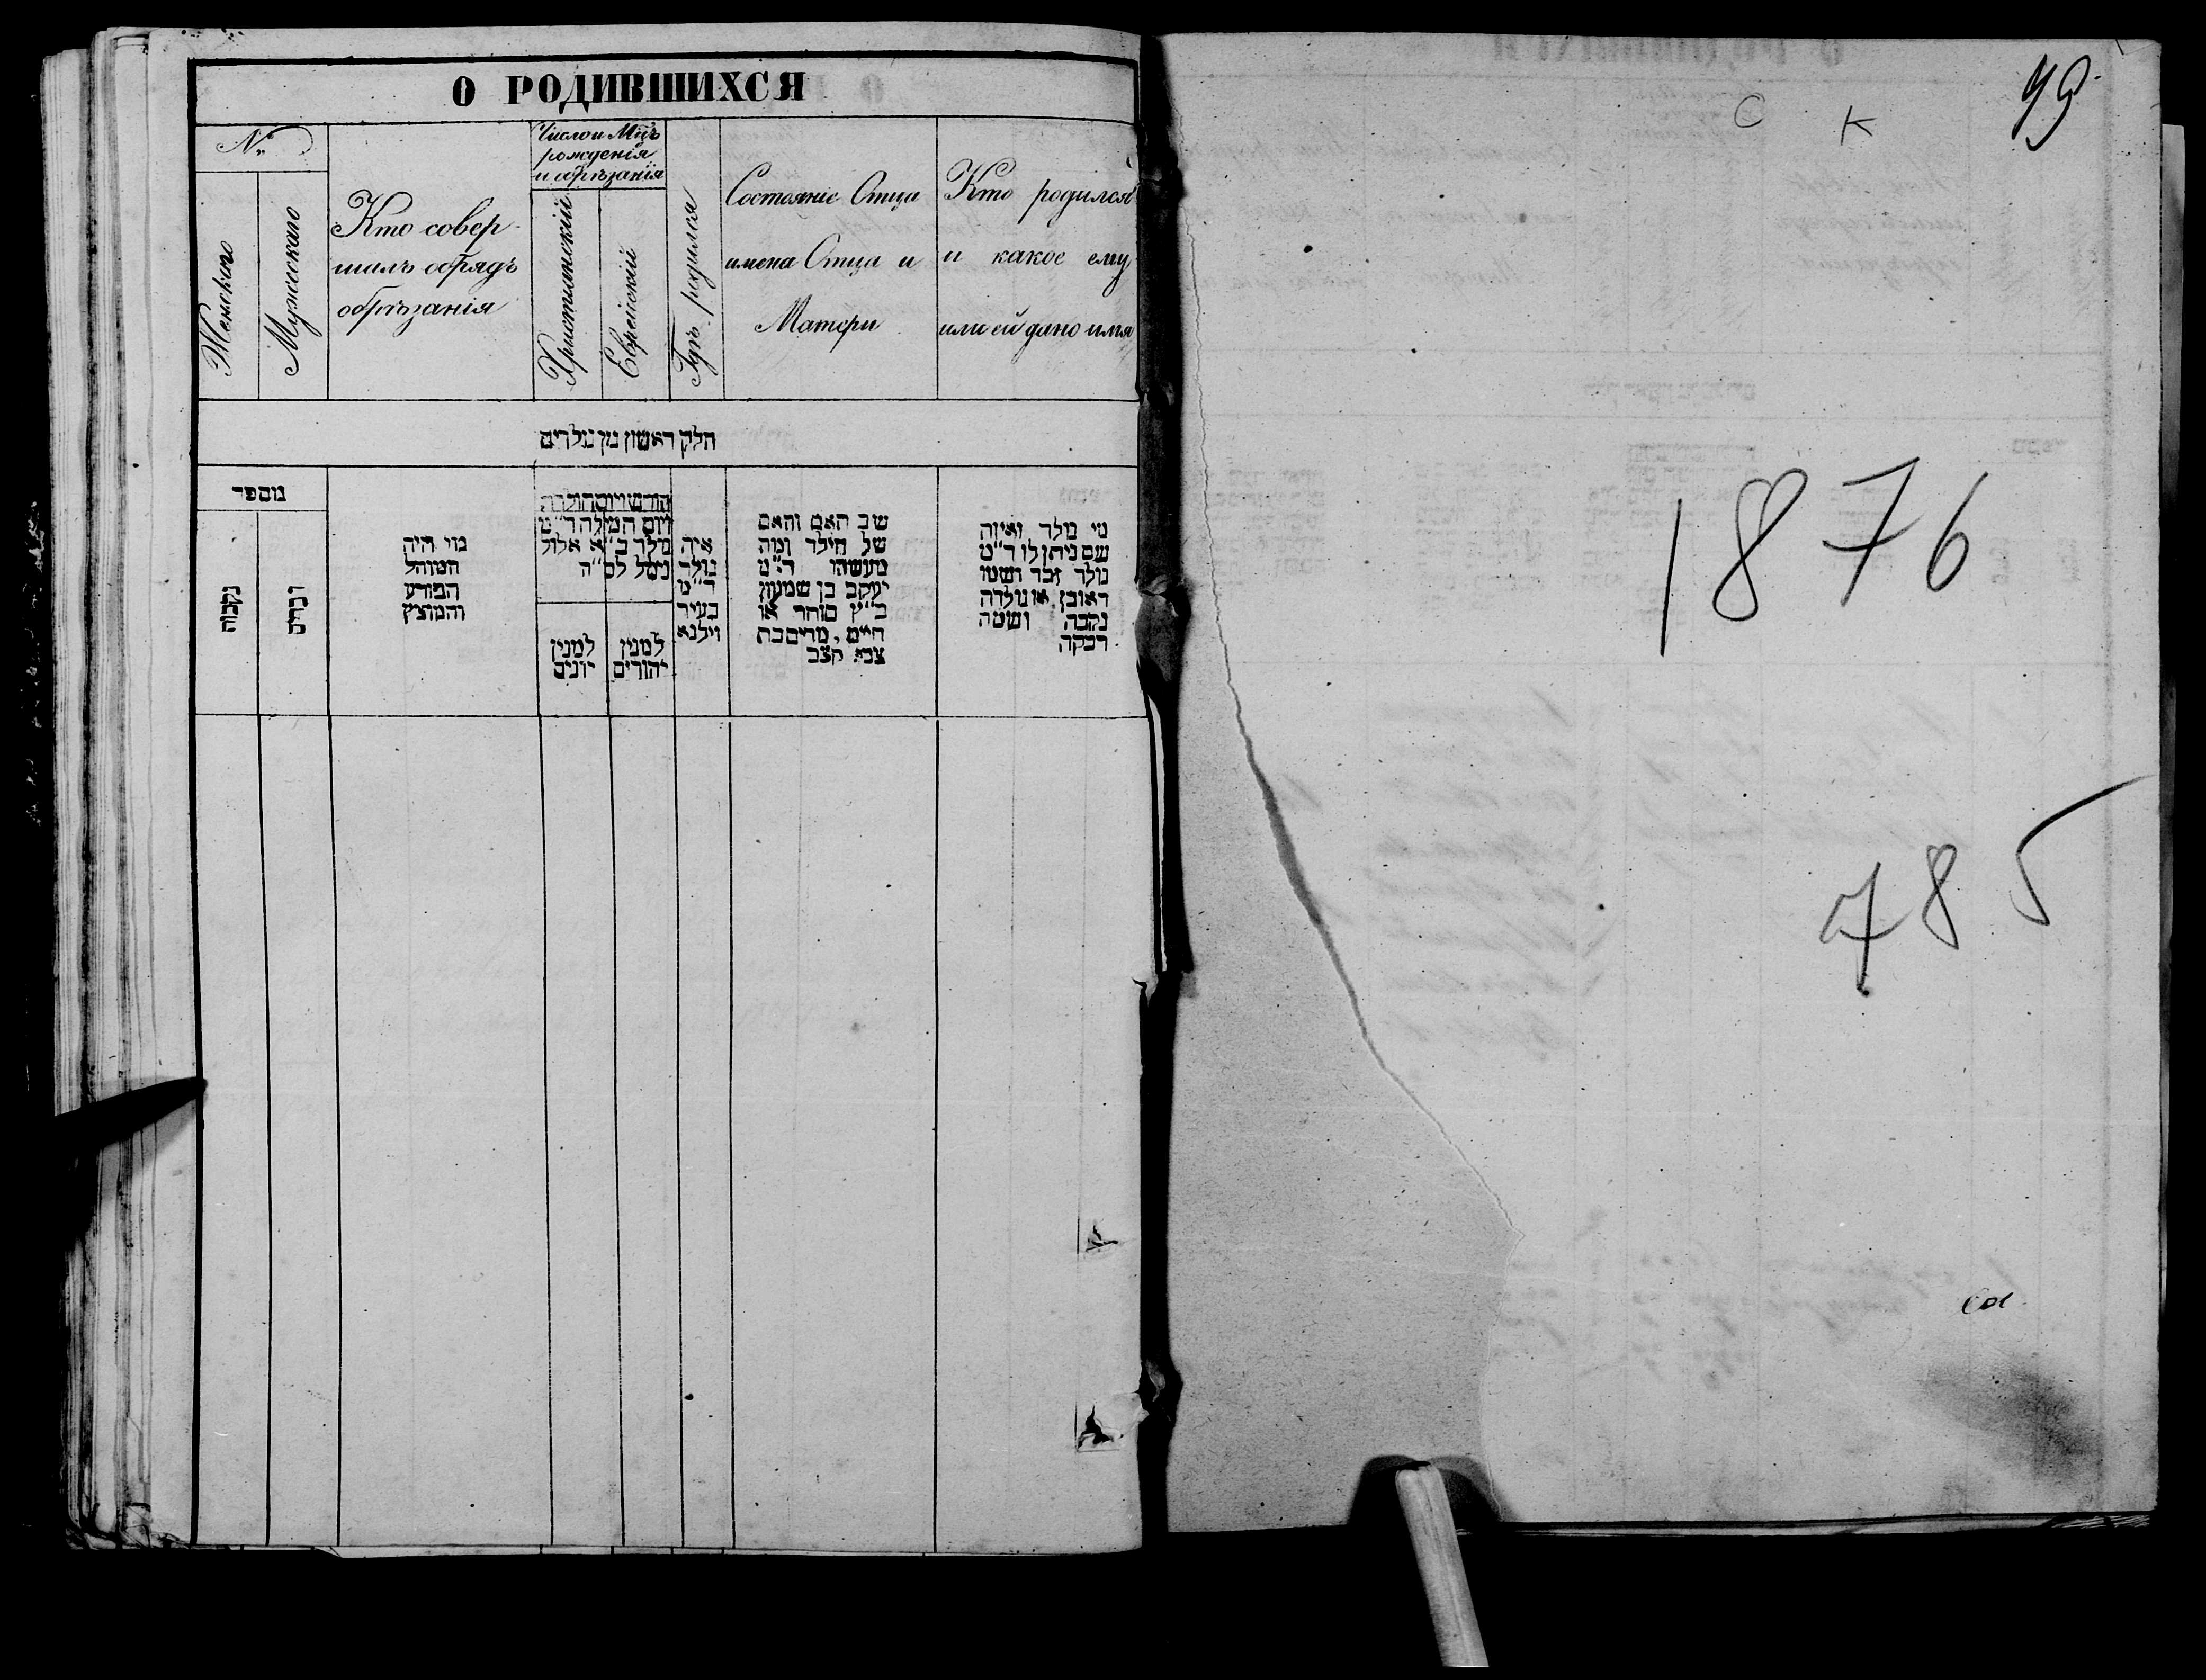 О РОДИВШИХСЯ
№
Женскаго
Мужескаго
Кто совер-
шилъ обрядъ
обрѣзанія
Число и Мцъ
рожденія
и обрѣзанія
Христіанскій
Еврейскій
Гдѣ родился
Состояніе Отца
имена Отца и
Матери
Кто родился
и какое ему
или ей дано имя
חלק ראשון מן נולדים
מספר
נקבות
זכרים
מי היה
המוהל
הפורע
והמוצץ
חודש ויום הולדת
ויום המילה ד״מ
נולד ב״א אלול
נימל לס״ה
למנין
יונים
למנין
יהודים
איה
נולד
ד״מ
בעיר
ווילנא
שב האם והאם
של הילד ומה
מעשהו ד״מ
יעקב בן שמעון
כ״ץ סוחר או
חיים, מרים בת
צבי קצב
מי נולד ואיזה
שם ניתן לו ד״מ
נולד זכר ושמו
ראובן, או נולדה
נקבה ושמה
רבקה
С К
1876
785